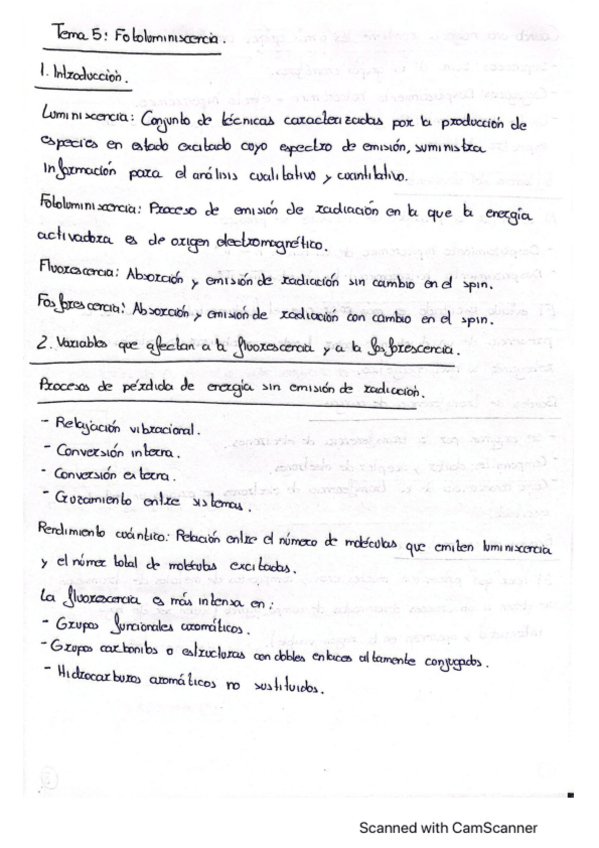 Tema 5: Fotoluminiscencia.
1. Introducción.
Luminiscencia: Conjunto de técnicas caracterizadas por la producción de
especies en estado excitado cuyo espectro de emisión, suministra
información para el análisis cualitativo y cuantitativo.
Fotoluminiscencia: Proceso de emisión de radiación en la que la energía
activadora es de origen electromagnético.
Fluorescencia: Absorción y emisión de radiación sin cambio en el spin.
Fosforescencia: Absorción y emisión de radiación con cambio en el spin.
2. Variables que afectan a la fluorescencia y a la fosforescencia.
Procesos de pérdida de energía sin emisión de radicción.
- Relajación vibracional.
- Conversión interna.
- Conversión externa.
- Cruzamiento entre sistemas.
Rendimiento cuántico: Relación entre el número de moléculas que emiten luminiscencia
y el númer total de moléculas excitadas.
La fluorescencia es más intensa en:
- Grupos funcionales aromáticos.
- Grupos carbonilos o estructuras con dobles enlaces altamente conjugados.
- Hidrocarburos aromáticos no sustituidos.
Scanned with CamScanner